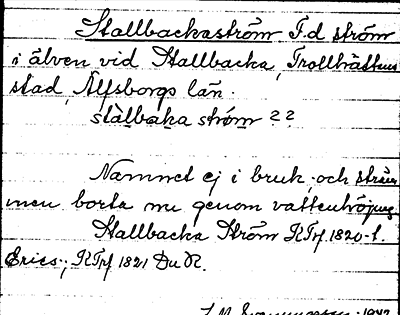 Stallbackaström F.d ström
i älven vid Stallbacka, Trollhättans
stad, Älfsborgs län.
stàlbaka stróm ??
Namnet ej i bruk, och ström
men borta nu genom vattenhöjng
Stallbacka Ström RTrf 1820-t.
Erics.; RTrf 1821 Du R.